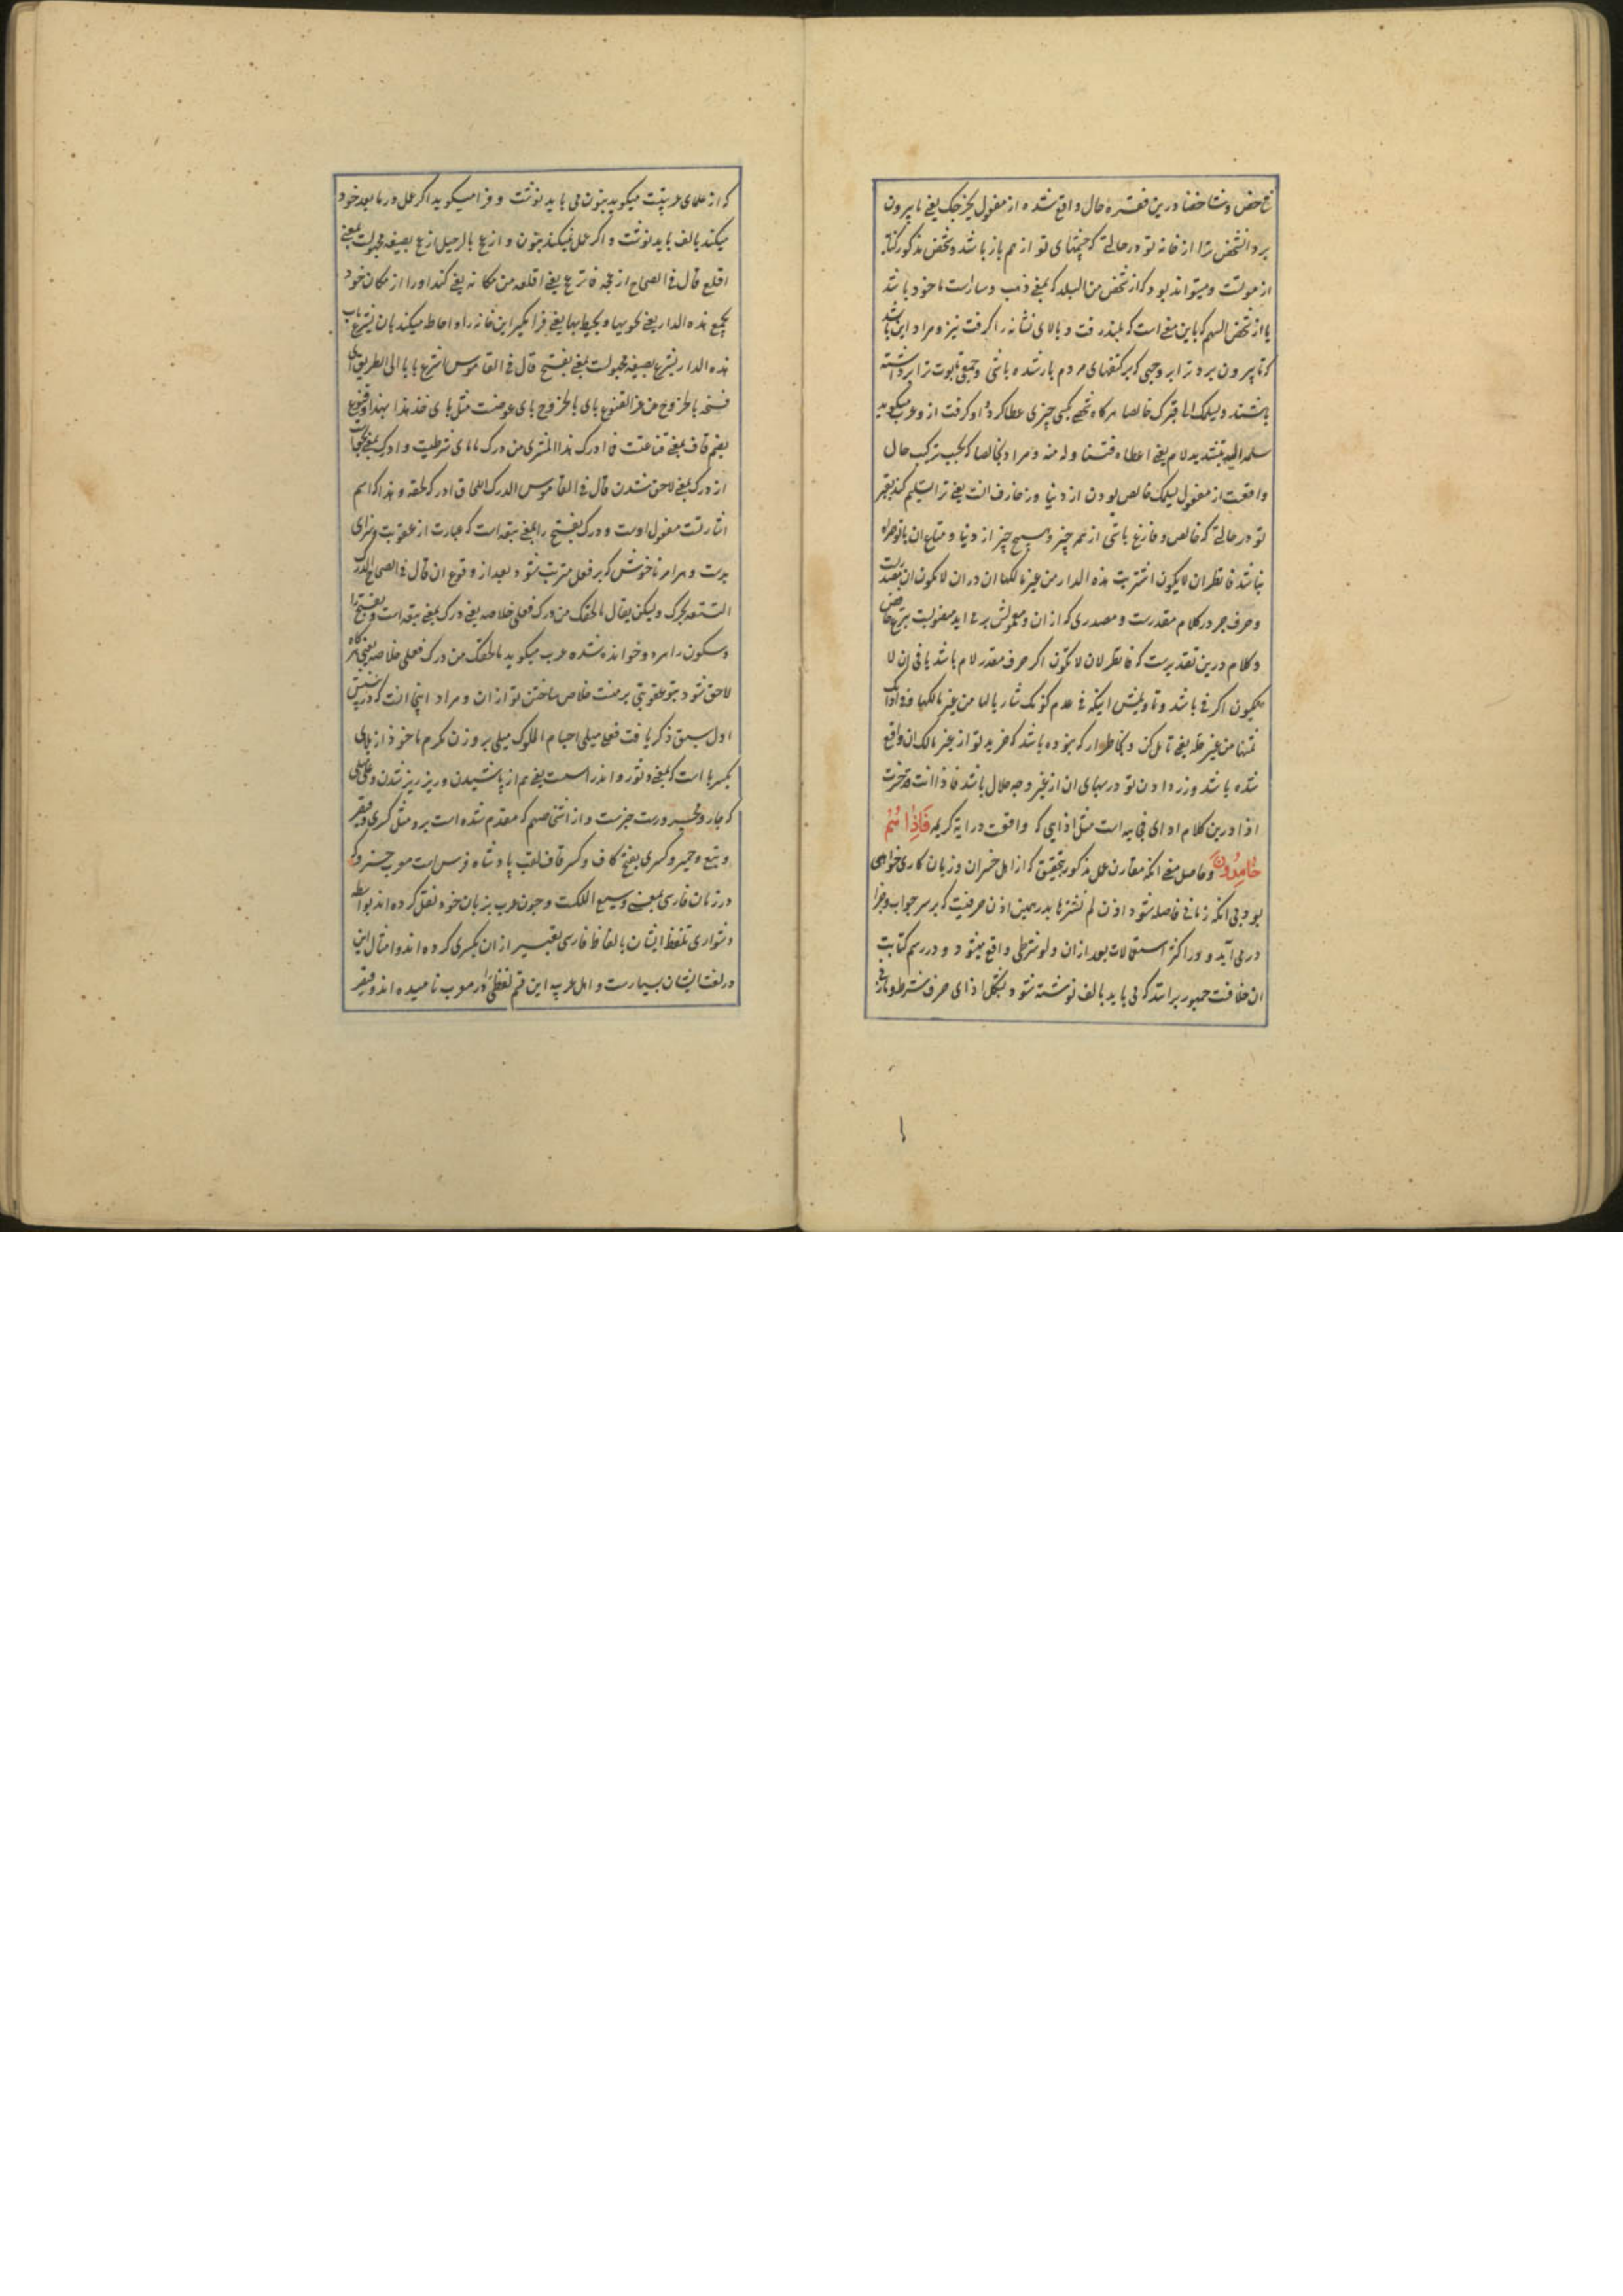 شخص و شاخصا درین فقره حال واقع شده از مفعول یخرجک یعنی تا بیرون
برد آن شخص ترا از خانه تو در حالتی که چشمهای تو از هم باز باشد و شخص مذکور کنایه
از موتست و میتواند بود که از شخص من البلد که بمعنی ذهب و سارست ماخوذ باشد
یا از شخص السهم که باین معنی است که بلند رفت و بالای نشانه را گرفت تیز و مراد این باشد
که تا بیرون برد ترا بر وجهی که بر کتفهای مردم بار شده باشی و جمعی تابوت ترا برداشته
باشند و یسلمک الی قبرک خالصا هرکاه شخصی بکسی چیزی عطا کرد و او گرفت از و عرب میگوید
سلمه الیه بتشدید لام یعنی اعطاه فتناوله منه و مراد بخالصا که بحسب ترکیب حال
واقعست از مفعول یسلمک خالص بودن از دنیا و زخارف انست یعنی ترا تسلیم کند بقبر
تو در حالتی که خالص و فارغ باشی از هر چیز و هیچ چیز از دنیا و متاع ان با تو همراه
نباشد فانظر ان لا یکون اشتریت هذه الدار من غیر مالکها ان در ان لا یکون ان مصدریست
و حرف جر در کلام مقدرست و مصدری که از ان و معمولش بر می اید منصوبست بنزع خافض
و کلام درین تقدیرست که فانظر لان لا تکون اگر حرف مقدر لام باشد یا فی ان لا
تکون اگر فی باشد و تاویلش اینکه فی عدم کونک شاریا لها من غیر مالکها و وزنت
ثمنها من غیر حله یعنی تامل کن و بخاطر ار که نبوده باشد که خرید تو از غیر مالک ان واقع
شده باشد و زر دادن تو در بهای ان از غیر وجه حلال باشد فاذا انت قد خسرت
اذا درین کلام اذای فجاییه است مثل اذایی که واقعست در ایه کریمه فَاِذا هُم
خامِدُونَ و حاصل معنی انکه مقارن عمل مذکور بتحقیق که از اهل خسران و زیان کاری خواهی
بود بی انکه زمانی فاصله شود اذن لم تشترها بدرهمین اذن حرفیست که بر سر جواب و جزا
در می آید و در اکثر استعمالات بعد از ان و لو شرطی واقع میشود و در رسم کتابت
ان خلافست جمهور برانند که می باید بالف نوشته شود بشکل اذای حرف شرط و مازنی
که از علمای عربیتست میگوید بنون می باید نوشت و فرا میگوید اگر عمل در ما بعد خود
میکند بالف باید نوشت و اگر عمل نمیکند بنون و ازعج بالرحیل ازعج بصیغه مجهولست بمعنی
اقلع قال فی الصحاح ازعجه فانزعج یعنی اقلعه من مکانه یعنی کند او را از مکان خود
یجمع هذه الدار یعنی یحویها و یحیط بها یعنی فرا میگیر این خانه را و احاطه میکند بان یشرع باب
هذه الدار یشرع بصیغه مجهولست بمعنی یفتح قال فی القاموس اشرع بابا الی الطریق ای
فتحه بالخروج من عز القنوع بای بالخروج بای عوضست مثل بای خذ هذا بهذا و قنوع
بضم قاف بمعنی قناعتست فما ادرک هذا المشتری من درک مامای شرطیست و ادرک بمعنی لحقست
از درک بمعنی لاحق شدن قال فی القاموس الدرک اللحاق ادرکه لحقه و هذا که اسم
اشارتست مفعول اوست و درک بفتح را بمعنی تبعه است که عبارت از عقوبت و سزای
بدست و هر امر ناخوش که بر فعل مترتب شود بعد از وقوع ان قال فی الصحاح الدرک
التبعه یحرک و یسکن یقال مالحقک من درک فعلی خلاصه یعنی درک بمعنی تبعه است و بفتح را
و سکون را هر دو خوانده شده عرب میگوید مالحقک من درک فعلی خلاصه یعنی هرکاه
لاحق شود بتو عقوبتی بر منست خلاص ساختن تو از ان و مراد اینجا انست که در بیتش
اول سبق ذکر یافت فعلی مبلی اجسام الملوک مبلی بر وزن مکرم ماخوذ از بلای
بکسر با است که بمعنی دثور و اندراسست یعنی هم از پاشیدن و ریز ریز شدن و علی مبلی
که جار و مجرورست خبرست و از اشخاصهم که مقدم شده است برو مثل کسری و قیصر
و تبع و حمیر و کسری بفتح کاف و کسر قاف لقب پادشاه فرس است معرب خسرو که
در زبان فارسی بمعنی وسیع الملکست و چون عرب بزبان خود نقل کرده اند بواسطه
دشواری تلفظ ایشان بالفاظ فارسی تعبیر از ان بکسری کرده اند و امثال این
در لغت ایشان بسیارست و اهل عرب این قسم لفظی را معرب نامیده اند و قیصر